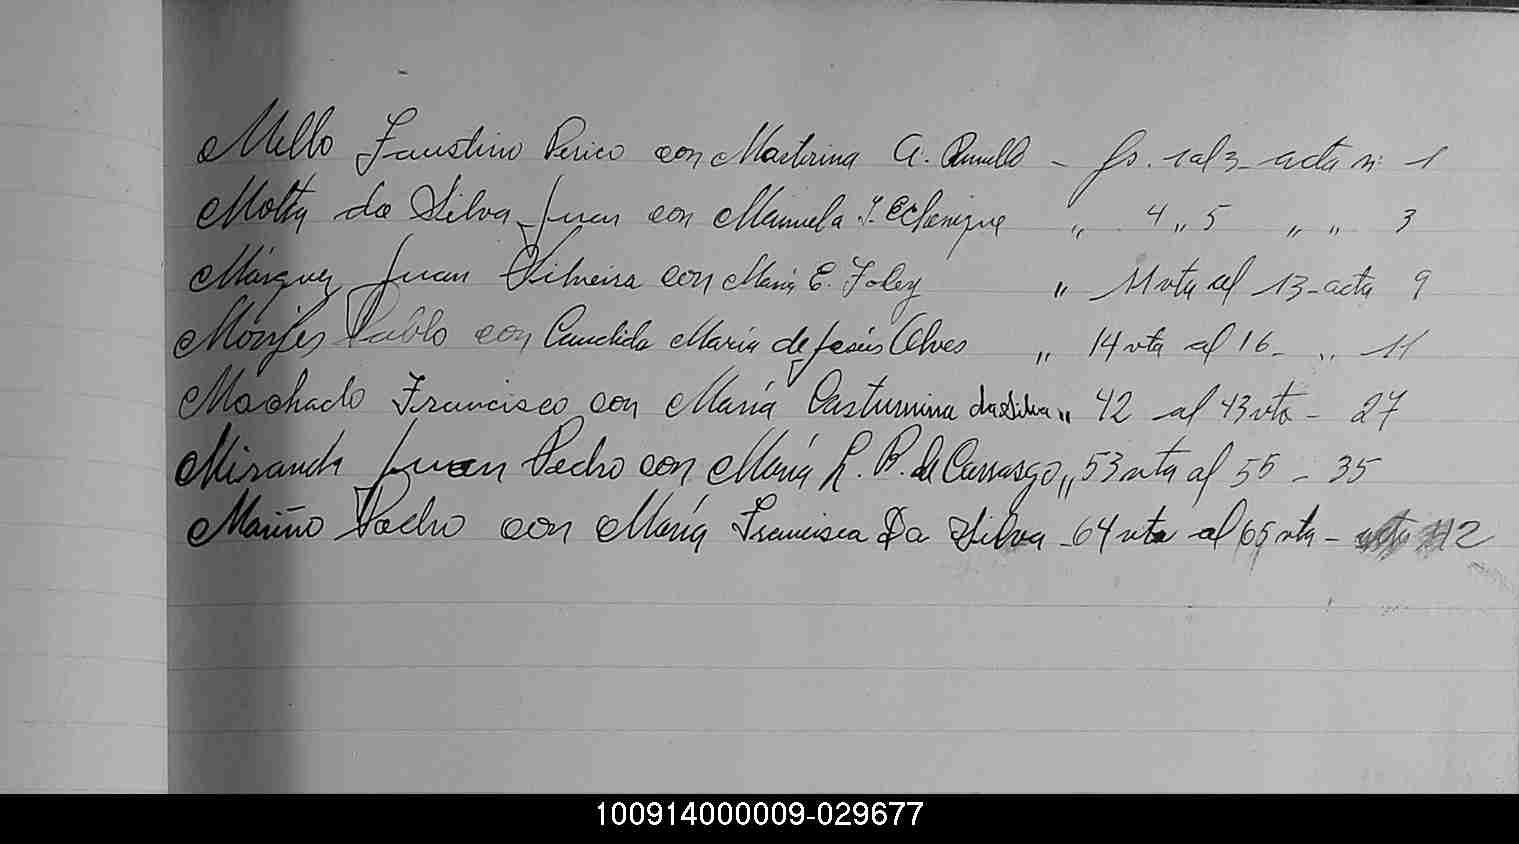 Mello Faustino Perico con Martirina A. - fs. 1 al 3 - acta n: 1
Motta da Silva Juan con Manuela Y. Echenique " 4 " 5 " " 3
Márquez Juan Silveira con María E. Foley " 11 vta al 13 - acta 9
Pablo con Candida María de Jesús Alves " 14 vta al 16 - " 11
Machado Francisco con María Casturnina da Silva " 42 al 43 vta - 27
Miranda Juan Pedro con María L. B. de Carrasgo " 53 vta al 55 - 35
Mariño Pedro con María Francisca Da Silva - 64 vta al 65 vta - acta 42
100914000009-029677